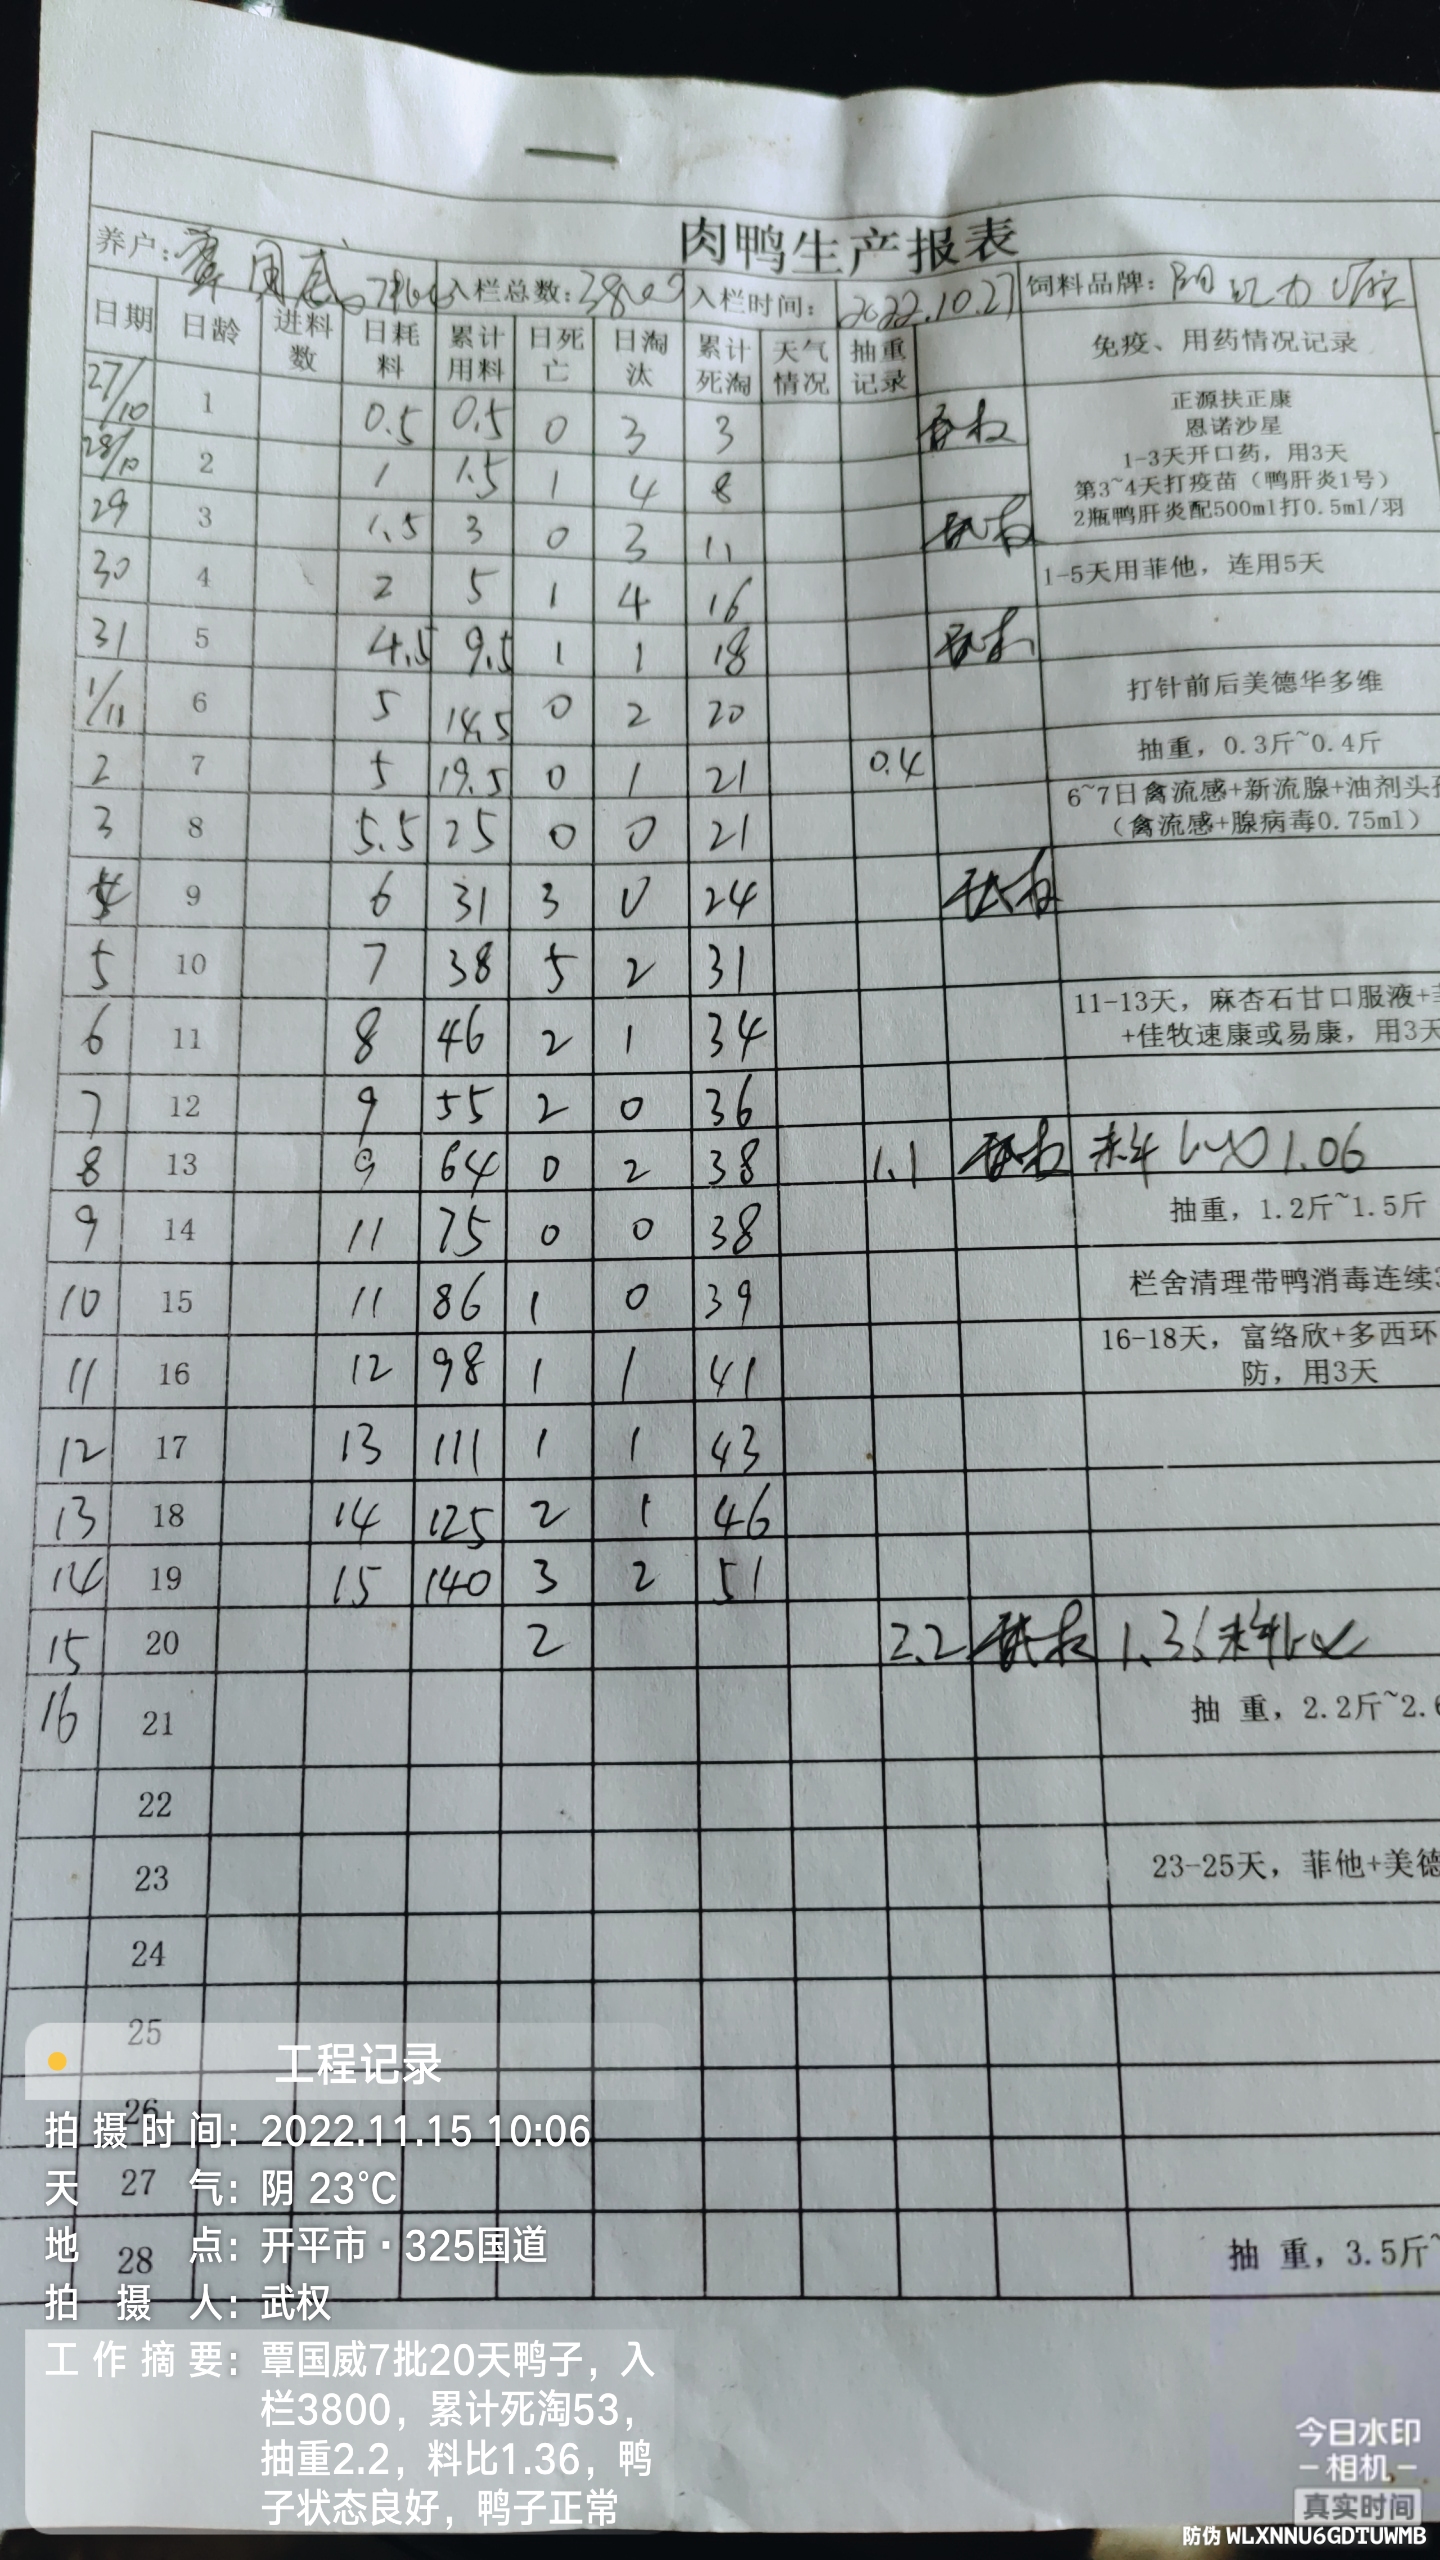 肉鸭生产报表
养户：覃国威 7批 入栏总数：3800 入栏时间：2022.10.27 饲料品牌：
日期 日龄 进料数 日耗料 累计用料 日死亡 日淘汰 累计死淘 天气情况 抽重记录 免疫、用药情况记录
27/10 1 0.5 0.5 0 3 3 武权
正源扶正康
恩诺沙星
1-3天开口药，用3天
第3~4天打疫苗（鸭肝炎1号）
2瓶鸭肝炎配500ml打0.5ml/羽
28/10 2 1 1.5 1 4 8
29 3 1.5 3 0 3 11 武权
30 4 2 5 1 4 16 1-5天用菲他，连用5天
31 5 4.5 9.5 1 1 18 武权
1/11 6 5 14.5 0 2 20 打针前后美德华多维
2 7 5 19.5 0 1 21 0.4 抽重，0.3斤~0.4斤
3 8 5.5 25 0 0 21 6~7日禽流感+新流腺+油剂头孢
（禽流感+腺病毒0.75ml）
4 9 6 31 3 0 24 武权
5 10 7 38 5 2 31
6 11 8 46 2 1 34 11-13天，麻杏石甘口服液+
+佳牧速康或易康，用3天
7 12 9 55 2 0 36
8 13 9 64 0 2 38 1.1 武权 料比 1.06
9 14 11 75 0 0 38 抽重，1.2斤~1.5斤
10 15 11 86 1 0 39 栏舍清理带鸭消毒连续3
11 16 12 98 1 1 41 16-18天，富络欣+多西环
防，用3天
12 17 13 111 1 1 43
13 18 14 125 2 1 46
14 19 15 140 3 2 51
15 20 2 2.2 武权 1.36料比
16 21 抽 重，2.2斤~2.6
22
23 23-25天，菲他+美德
24
25
26
27
28 抽 重，3.5斤~
工程记录
拍摄时间：2022.11.15 10:06
天气：阴 23℃
地点：开平市·325国道
拍摄人：武权
工作摘要：覃国威7批20天鸭子，入
栏3800，累计死淘53，
抽重2.2，料比1.36，鸭
子状态良好，鸭子正常
今日水印
相机
真实时间
防伪 WLXNNU6GDTUWMB